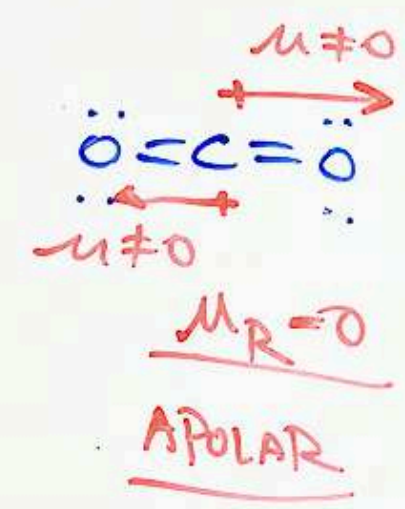 μ ≠ 0
O = C = O
μ ≠ 0
μR = 0
APOLAR